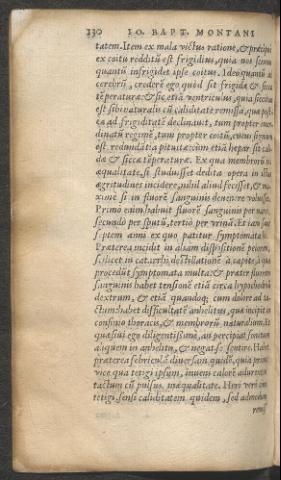 130 IO. BAPT. MONTANI
tatem. Item ex mala victus ratione, & præcipuè
ex coitu redditũ est frigidius, quia nos scimus
quantũ infrigidet ipse coitus. Ideo quantũ ad
cerebrũ, crederẽ ego quòd sit frigidæ & siccæ
tẽperaturæ: & sic etiã ventriculus, quia siccitas
est sibi naturalis cũ caliditate remissa, quæ postea
ad frigiditatẽ declinauit, tum propter
dinatũ regimẽ, tum propter coitũ, cuius signum
est redundãtia pituitæ: cùm etiã hepar sit cali-
dæ & siccæ tẽperaturæ. Ex qua membrorũ in-
æqualitate, si studuisset dedita opera in illas
ægritudines incidere, nihil aliud fecisset, &
ximè si in fluorẽ sanguinis deuenire voluisset.
Primò enim habuit fluorẽ sanguinis per nares,
secundò per sputũ, tertiò per venas, & iam sunt
septem anni ex quo patitur symptomata
Præterea incidit in aliam dispositionẽ peiorem,
scilicet in catarrhũ, destillationẽ à capite, à qua
procedũt symptomata multa: & præter fluorem
sanguinis habet tensionẽ etiã circa hypochõdriũ
dextrum, & etiã quandoq; cum dolore ad ta-
ctum: habet difficultatẽ anhelitus, quæ incipit in
confinio thoracis, & membrorũ naturaliũ. Et
quæsiui ego diligentissimè, an percipiat fœtorem
aliquem in anhelitu, & negat se sentire. Habet
præterea febriculã diuersam quidẽ, quia prima
vice qua tetigi ipsum, inueni calorẽ adurentẽ
tactum cũ pulsus inæqualitate. Heri verò cùm
tetigi, sensi caliditatem quidem, sed admodum